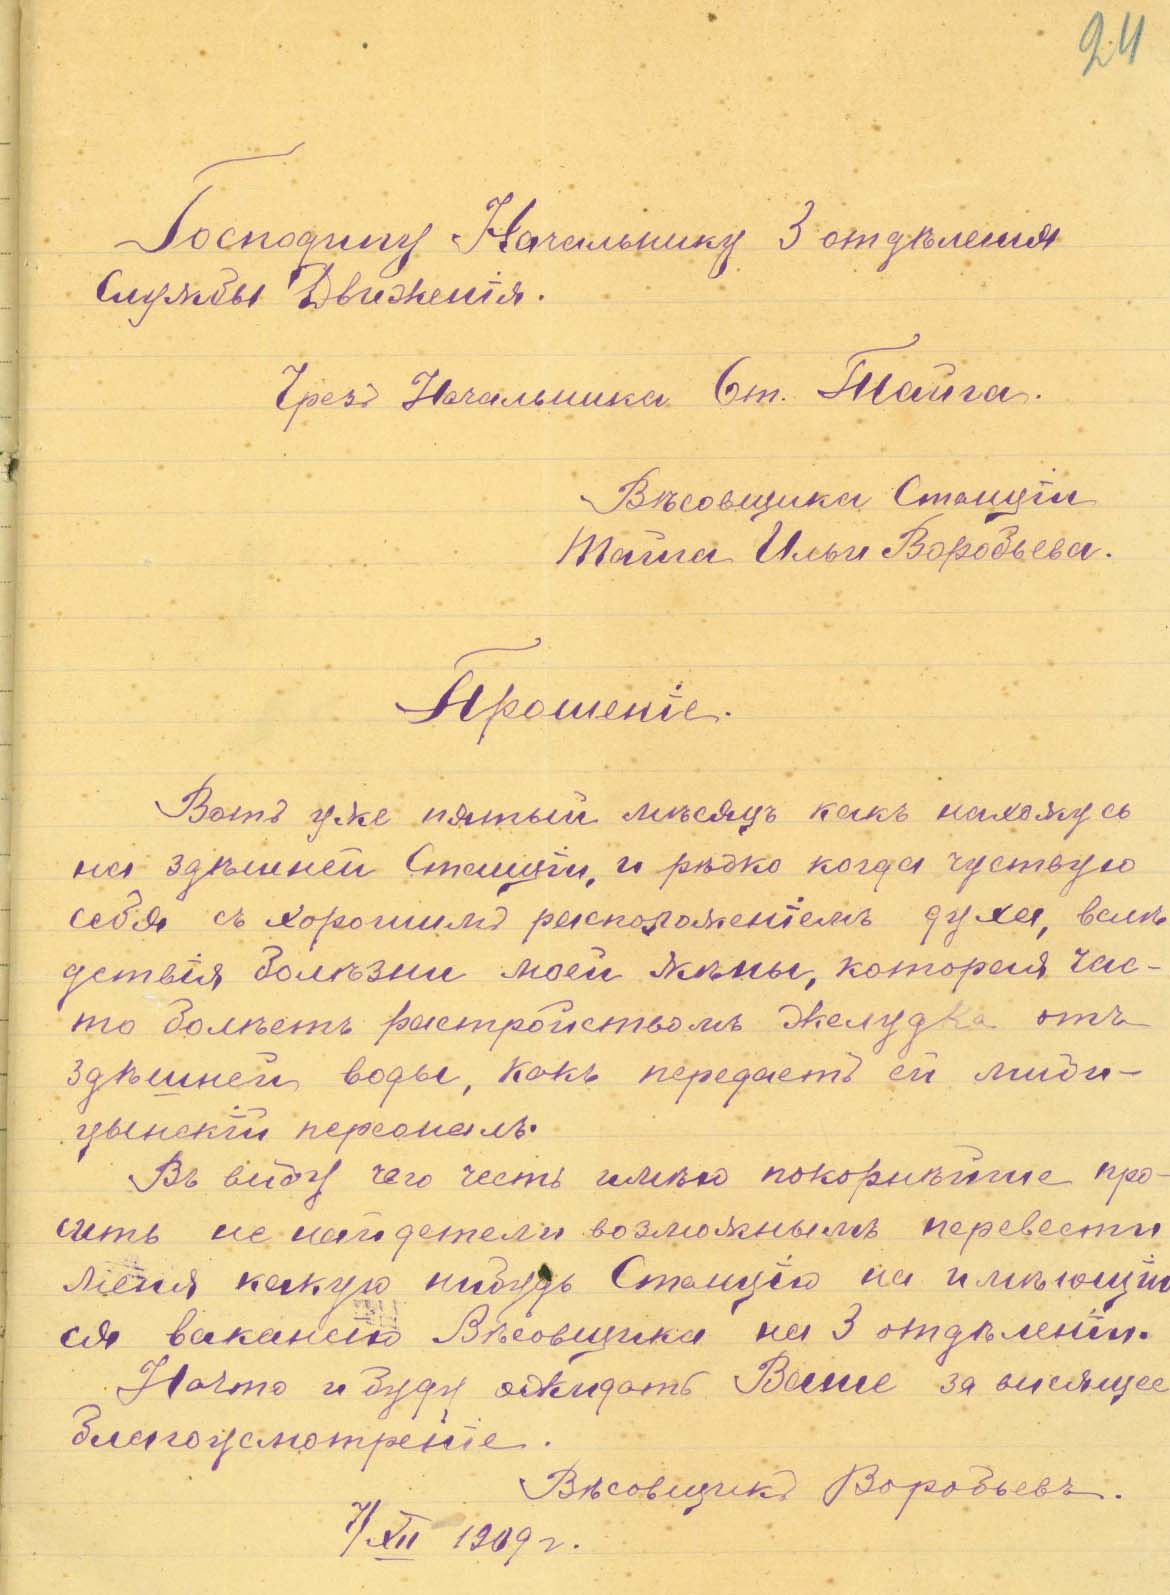 24
Господину Начальнику 3 отдѣленія
Службы Движенія.
Чрезъ Начальника Ст. Тайга.
Вѣсовщика Станціи
Тайга Ильи Воробьева.
Прошеніе.
Вотъ уже пятый мѣсяцъ какъ нахожусь
на здѣшней Станціи, и рѣдко когда чуствую
себя съ хорошимъ расположеніемъ духа, вслѣ
дствія болѣзни моей жѣны, которая час-
то болѣетъ растройствомъ желудка отъ
здѣшней воды, какъ передаетъ ей миди-
цынскій персоналъ.
Въ виду чего честь имѣю покорнѣйше про-
сить не найдетели возможнымъ перевести
меня какую нибудь Станцію на имѣющію
ся вакансію Вѣсовщика на 3 отдѣленіи.
Начто и буду ожидать Ваше за висящее
благоусмотреніе.
Вѣсовщикъ Воробьевъ.
7/XII 1909 г.